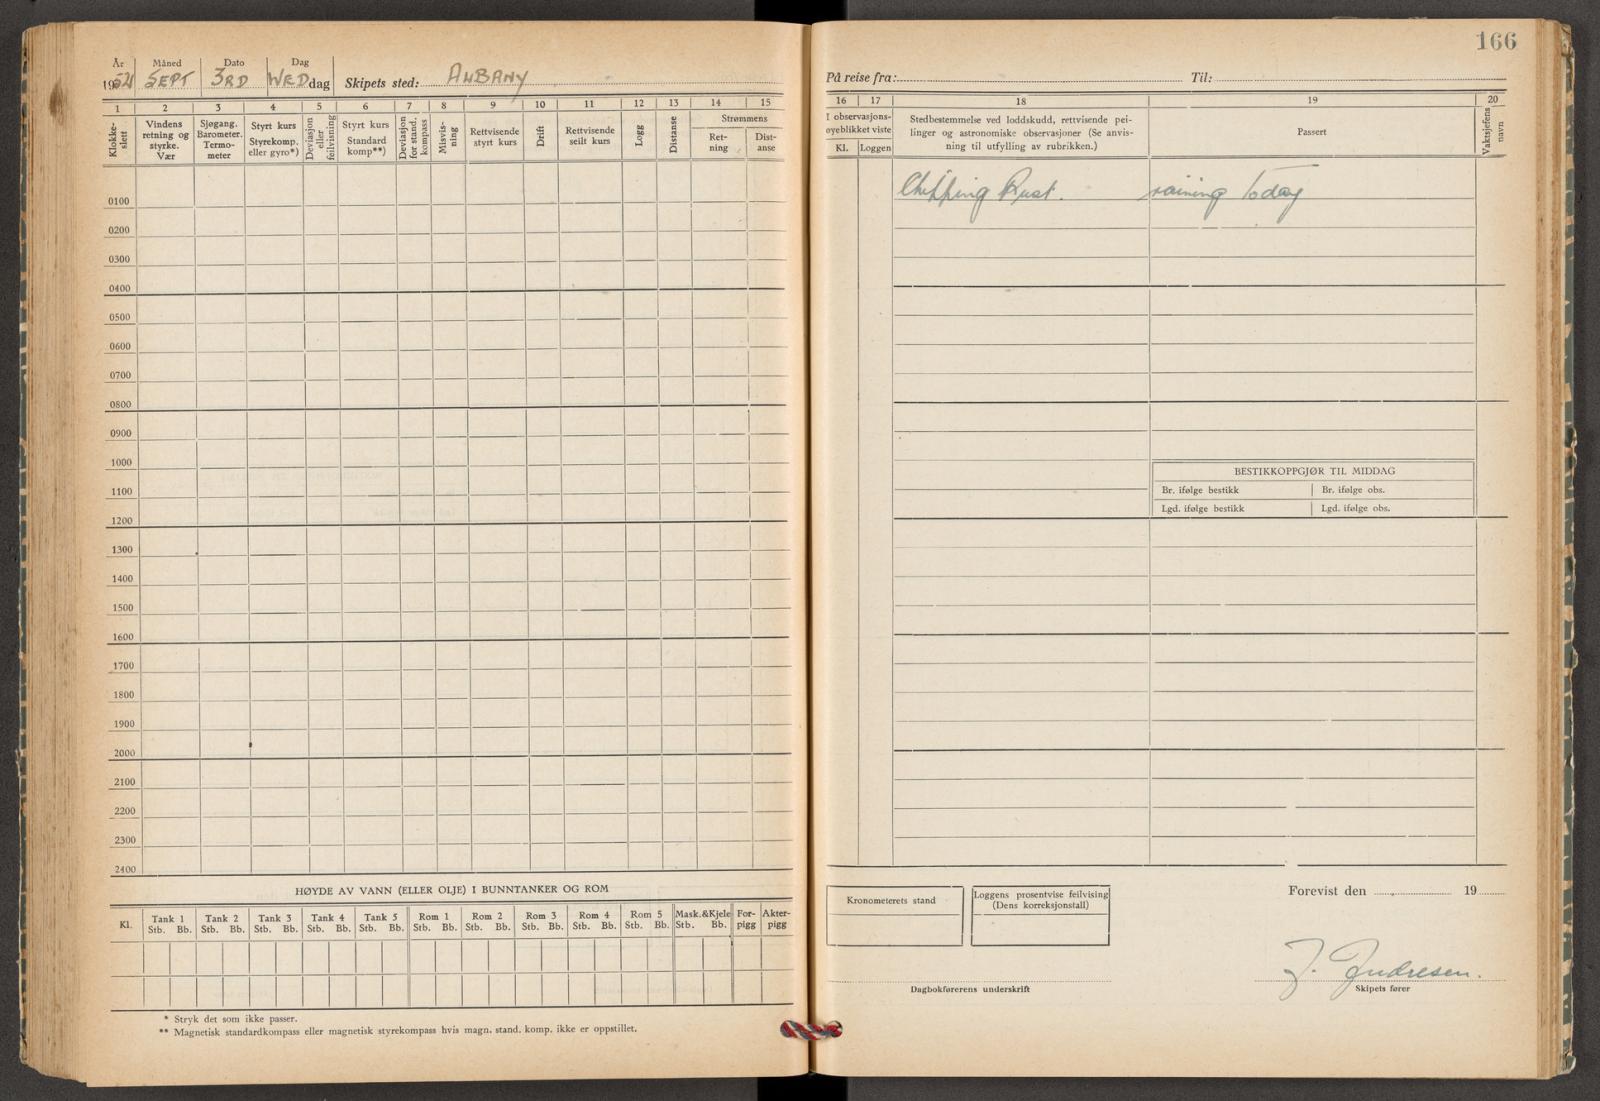 166
År Måned Dato Dag
1952 SEPT 3RD WEDdag Skipets sted: ALBANY
På reise fra: Til:
1 2 3 4 5 6 7 8 9 10 11 12 13 14 15
Klokke-slett
Vindens retning og styrke. Vær
Sjøgang. Barometer. Termo-meter
Styrt kurs Styrekomp. eller gyro*)
Deviasjon eller feilvisning
Styrt kurs Standard komp**)
Deviasjon for stand. kompass
Misvis-ning
Rettvisende styrt kurs
Drift
Rettvisende seilt kurs
Logg
Distanse
Strømmens
Ret-ning
Dist-anse
0100
0200
0300
0400
0500
0600
0700
0800
0900
1000
1100
1200
1300
1400
1500
1600
1700
1800
1900
2000
2100
2200
2300
2400
HØYDE AV VANN (ELLER OLJE) I BUNNTANKER OG ROM
Kl. Tank 1 Tank 2 Tank 3 Tank 4 Tank 5 Rom 1 Rom 2 Rom 3 Rom 4 Rom 5 Mask.&Kjele For-pigg Akter-pigg
Stb. Bb. Stb. Bb. Stb. Bb. Stb. Bb. Stb. Bb. Stb. Bb. Stb. Bb. Stb. Bb. Stb. Bb. Stb. Bb. Stb. Bb.
* Stryk det som ikke passer.
** Magnetisk standardkompass eller magnetisk styrekompass hvis magn. stand. komp. ikke er oppstillet.
16 17 18 19 20
I observasjons-øyeblikket viste
Kl. Loggen
Stedbestemmelse ved loddskudd, rettvisende pei-
linger og astronomiske observasjoner (Se anvis-
ning til utfylling av rubrikken.)
Passert
Vaktsjefens navn
Chipping Rust. raining Today
BESTIKKOPPGJØR TIL MIDDAG
Br. ifølge bestikk Br. ifølge obs.
Lgd. ifølge bestikk Lgd. ifølge obs.
Kronometerets stand
Loggens prosentvise feilvising
(Dens korreksjonstall)
Forevist den 19
J. Andresen.
Dagbokførerens underskrift
Skipets fører